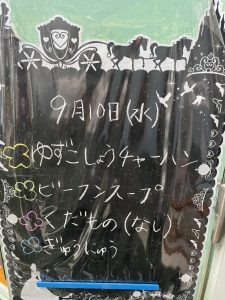 9月10日(水)
ゆずこしょうチャーハン
ビーフンスープ
くだもの(なし)
ぎゅうにゅう